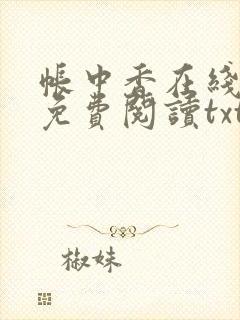 帳中香在綫
免費閱讀txt
椒妹